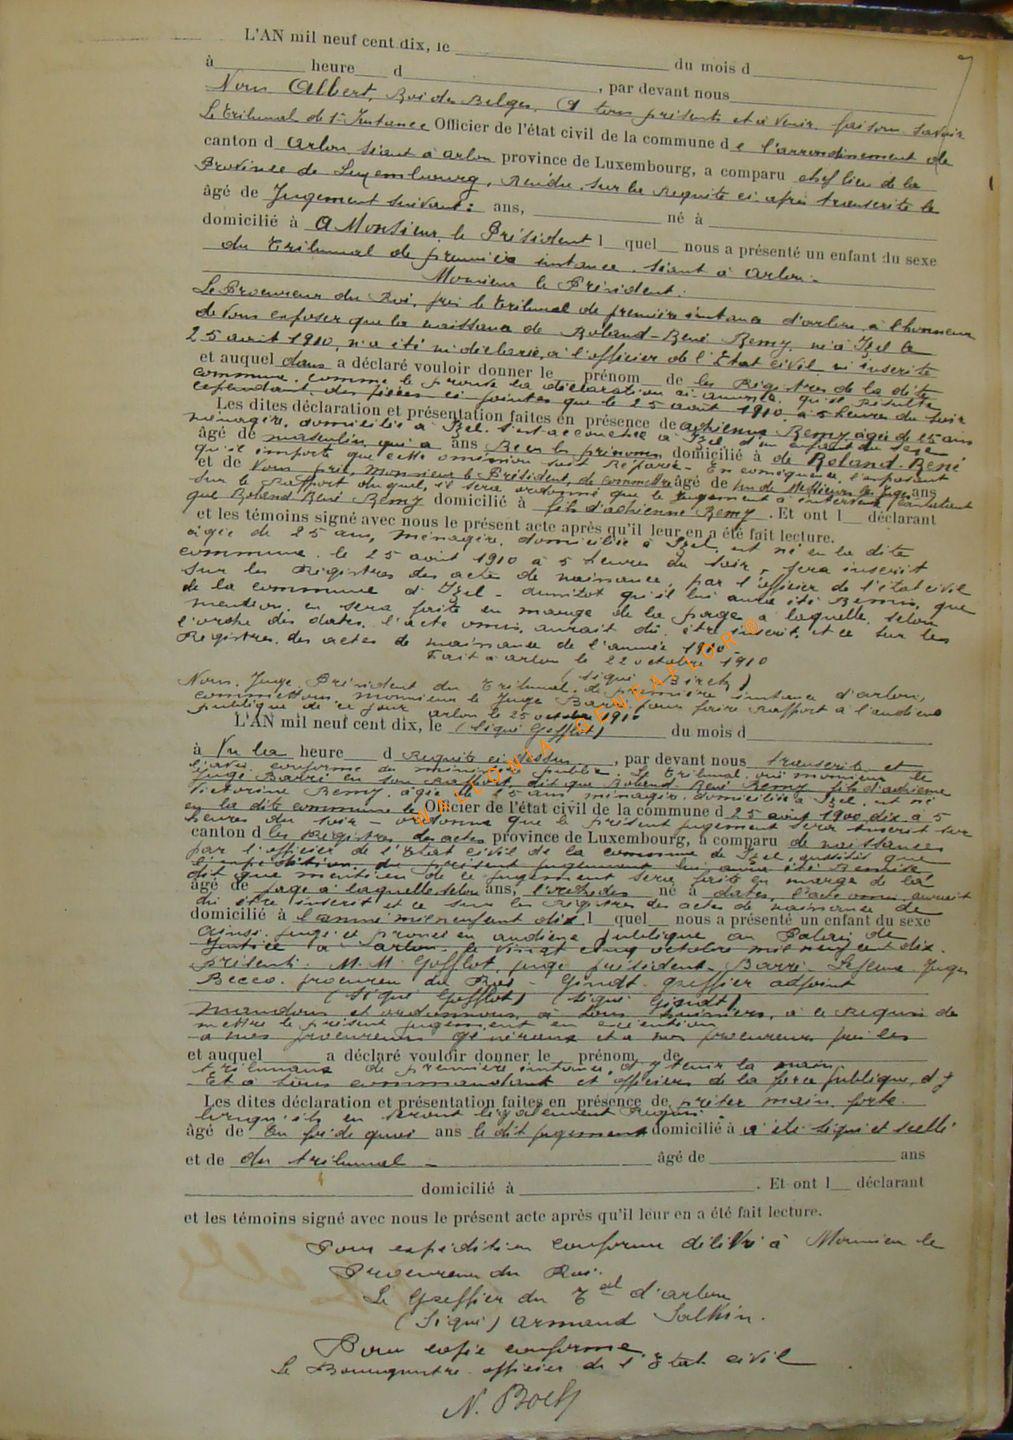 L'AN mil neuf cent dix, le du mois d
à heure d , par devant nous
Nous Albert, Roi des Belges, A tous présents et à venir, faisons savoir
Le tribunal de 1re Instance Officier de l'état civil de la commune d e l'arrondissement de
canton d Arlon séant à Arlon province de Luxembourg, a comparu chef lieu de la
Province de Luxembourg, Rendu, sur la Requête ci-après transcrite le
âgé de Jugement suivant: ans, né à
domicilié à A Monsieur le Président l quel nous a présenté un enfant du sexe
du Tribunal de première instance, séant à Arlon.
Monsieur le Président.
Le Procureur du Roi, près le tribunal de première instance d'Arlon, a l'honneur
de vous exposer que la naissance de Roland-René Remy, né à Izel le
25 août 1910, n'a été ni déclarée, à l'officier de l'Etat civil, ni inscrite
et auquel dans a déclaré vouloir donner le prénom de les Registres de la dite
commune, comme le prouve la déclaration ci-annexée, qu'il résulte
cependant, des pièces ci jointes que le 25 août 1910, à 5 heures du soir
Les dites déclaration et présentation faites en présence de Adrienne Remy âgée de 25 ans
ménagère, domiciliée à Izel, s'est accouchée à Izel d'un enfant du sexe
âgé de masculin, qui a ans Reçu les prénoms domicilié à de Roland-René
qu'il importe que cette omission soit Réparée. En conséquence, l'exposant
et de Vous prie, Monsieur le Président, de commettre âgé de un de Messieurs les Juges ans
sur le Rapport duquel, il sera ordonné que le jugement à intervenir, constatant
que Roland René Remy domicilié à fils d'Adrienne Remy. Et ont l déclarant
et les témoins signé avec nous le présent acte après qu'il leur en a été fait lecture.
âgée de 25 ans, ménagère, domiciliée à Izel, est né en la dite
commune, le 25 août 1910 à 5 heures du soir, sera inscrit
sur les Registres des actes de naissance, par l'officier de l'état civil
de la commune d'Izel - aussitôt qu'il lui aura été Remis, que
mention en sera faite en marge de la page à laquelle, selon
l'ordre des dates, l'acte omis, aurait dû être inscrit, et ce sur les
Registres des actes de naissance de l'année 1910.
Fait à Arlon le 22 octobre 1910
(signé) Birck)
Nous, Juge Président du Tribunal de première instance d'Arlon,
commettons, monsieur le Juge Barré, pour faire rapport à l'audience
publique de ce jour Arlon le 25 octobre 1910
L'AN mil neuf cent dix, le (signé Gofflot) du mois d
à Vu la heure d Requête ci-dessus , par devant nous transcrite et
l'avis conforme du ministère public. Le tribunal, ouï monsieur le
Juge Barré en son Rapport, dit que Roland-René Remy, fils d'Adrienne
Victorine Remy, âgée de 25 ans ménagère, domiciliée à Izel, est né
en la dite commune le Officier de l'état civil de la commune d 25 août 1900 dix à 5
heures du soir - ordonne que le présent jugement sera inscrit sur
canton d les Registres des actes province de Luxembourg, a comparu de naissances
par l'officier de l'Etat civil de la commune de Izel, aussitôt que
l'expédition du présent jugement lui aura été Remise
dit que mention de ce jugement sera faite en marge de la
âgé de page à laquelle selon ans, l'ordre des né à dates, l'acte omis aurait
dû être inscrit et ce sur les Registres des actes de naissance de
domicilié à l'année mil neuf cent dix l quel nous a présenté un enfant du sexe
Ainsi jugé et prononcé en audience publique au Palais de
Justice à Arlon, le vingt cinq octobre mil neuf cent dix.
présents: M.M. Gofflot, juge président - Barré - Lefèvre Juges
Becco, procureur du Roi - Giudt. greffier adjoint
(signé Gofflot) (signé Giudt)
Mandons et ordonnons, à tous huissiers, à ce Requis de
mettre le présent jugement en exécution
à nos procureurs généraux et à nos procureurs près les
et auquel a déclaré vouloir donner le prénom de
tribunaux de première instance, d'y tenir la main
Et à tous commandants et officiers de la force publique, d'y
Les dites déclaration et présentation faites en présence de prêter main forte.
lorsqu'ils en seront légalement Requis.
âgé de En foi de quoi ans le dit jugement domicilié à a été signé et scellé
et de du tribunal - âgé de ans
domicilié à . Et ont l déclarant
et les témoins signé avec nous le présent acte après qu'il leur en a été fait lecture.
Pour expédition conforme délivré à Monsieur le
Procureur du Roi.
Le Greffier du Tal d'Arlon
(Signé) Armand Salkin.
Pour copie conforme
Le Bourgmestre officier de l'Etat civil
N. Bock
WALLONIA-GENEALOR®